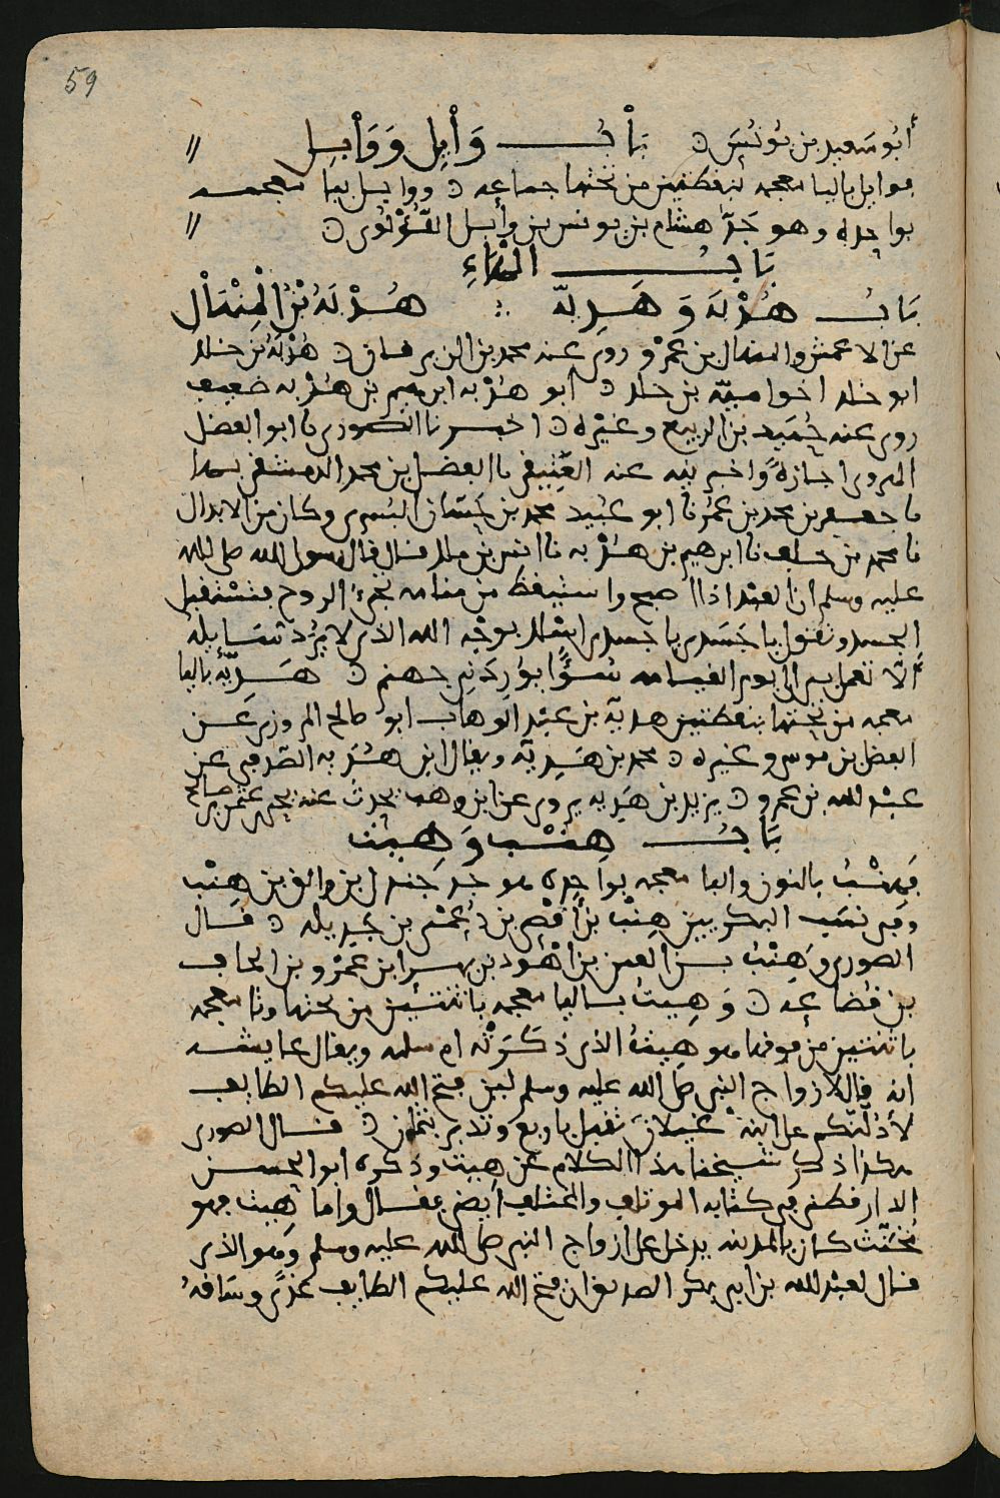 59
أبو سعيد بن يونس ٥ بَابُ وَائِل وَوَابِل //
فوايل باليا معجمه بنقطتين من تحتها جماعه ٥ ووابل ببا معجمه
بواحده وهو جَدّ هشام بن يونس بن وابل اللُّؤْلُوي ٥ //
بَابُ الْهَاءِ
بَابُ هُدْبَة وَ هَدِيَّة ∴ هُدْبَةُ بْنُ الْمِنْهَالِ
عن الاعمش والمنهال بن عمرو روى عنه محمد بن الزبرقان ٥ هُدْبَةُ بن خلد
ابو خلد اخو اميّة بن خلد ٥ أبو هُدْبه ابرهيم بن هُدْبه ضعيف
روى عنه حُمَيد بن الربيع وغيْره ٥ اخبرنا الصوري نا ابو الفضل
الهروي اجازةً واخبرنيه عنه العَتِيقي نا الفضل بن محمد الدمشقي بها
نا جعفر بن محمد بن عمر نا ابو عبيد محمد بن حَسّان البُسري وكان من الابدال
نا محمد بن خلف نا ابرهيم بن هُدْبه نا انس بن ملك قال قال رسول الله صلى الله
عليه وسلم ان العبْد اذا اصبح واستيقظ من منامه تجيُ الروح فتستقبل
الجسد وتقول يا جَسَدي يا جسدي اسْلك بوجْه الله الذي لا يُرَدّ سَايلهُ
ألّا تعمل بي الى يوم القيامه سُوًّا يُورِدُني جهنم ٥ هَدِيَّة باليا
معجمه من تحتها بنقطتين هديّة بن عبد الوهاب ابو صالح المروزي عن
الفضل بن موسى وغيره ٥ محمد بن هَدِيّة ويقال ابن هُدْبه الصَّدفي عن
عبْد الله بن عمرو ٥ يزيد بن هَدِيه يروي عن ابن وهب يحدث عنه يحيى بن عثمن بن صالح
بَابُ هِنْب وَ هِيْت
فَهِنْبُ بالنون والبا معجمه بواحده هو جد جندل بن والق بن هِنْب
وفي نسب البكريين هِنْبُ بن أَفْصَى بن دُعْمي بن جَديله ٥ قال
الصوري وَهِنْبُ بن القين بن اهْوَد بن بهرا بن عَمْرو بن الحاف
بن قُضاعه ٥ وَ هِيت باليا معجمه باثنتين من تحتها وتا معجمه
باثنتين من فوقها هو هِيتُ الذي ذكَرَتْه ام سلمه ويقال عايشه
انه قال لازواج النبي صلى الله عليه وسلم لين فتح الله عليكم الطايف
لأدُلّنّكم على ابْنَة غيلان تقبل باربع وتدبر بثمان ٥ قال الصوري
هكذا ذكر شيخنا هذا الكلام عن هِيت وذكره ابو الحسن
الدارقطني في كتابه الموتلف والمختلف ايضً فقال واما هِيت فهو
مُخَنَّث كان بالمدينه يدخل على ازواج النبي صلى الله عليه وسلم وهو الذي
قال لعبْد الله بن ابي بكر الصديق ان فتح الله عليكم الطايف غدًى وساقهُ